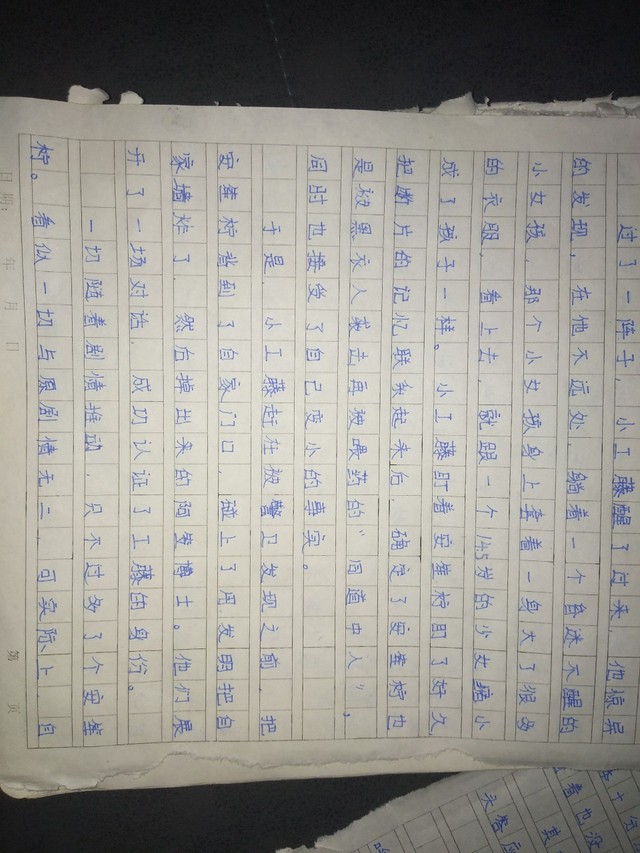 过了一阵子，小工藤醒了过来，他惊异
的发现，在他不远处，躺着一个昏迷不醒的
小女孩，那个小女孩身上穿着一身大了很多
的衣服，看上去，就跟一个145岁的小女孩小
成了孩子一样。小工藤盯着安室柠盯了好久
把断片的记忆联系起来后，确定了安室柠也
是被黑衣人袭击再被喂药的“同道中人”，
同时也接受了自己变小的事实。
于是，小工藤赶在被警卫发现之前，把
安室柠背到了自家门口，碰上了用发明把自
家墙炸了，然后掉出来的阿笠博士。他们展
开了一场对话，成功认证了工藤的身份。
一切随着剧情推动，只不过多了个安室
柠。看似一切与原剧情无二，可实际上，自
日期： 年 月 日 第 页